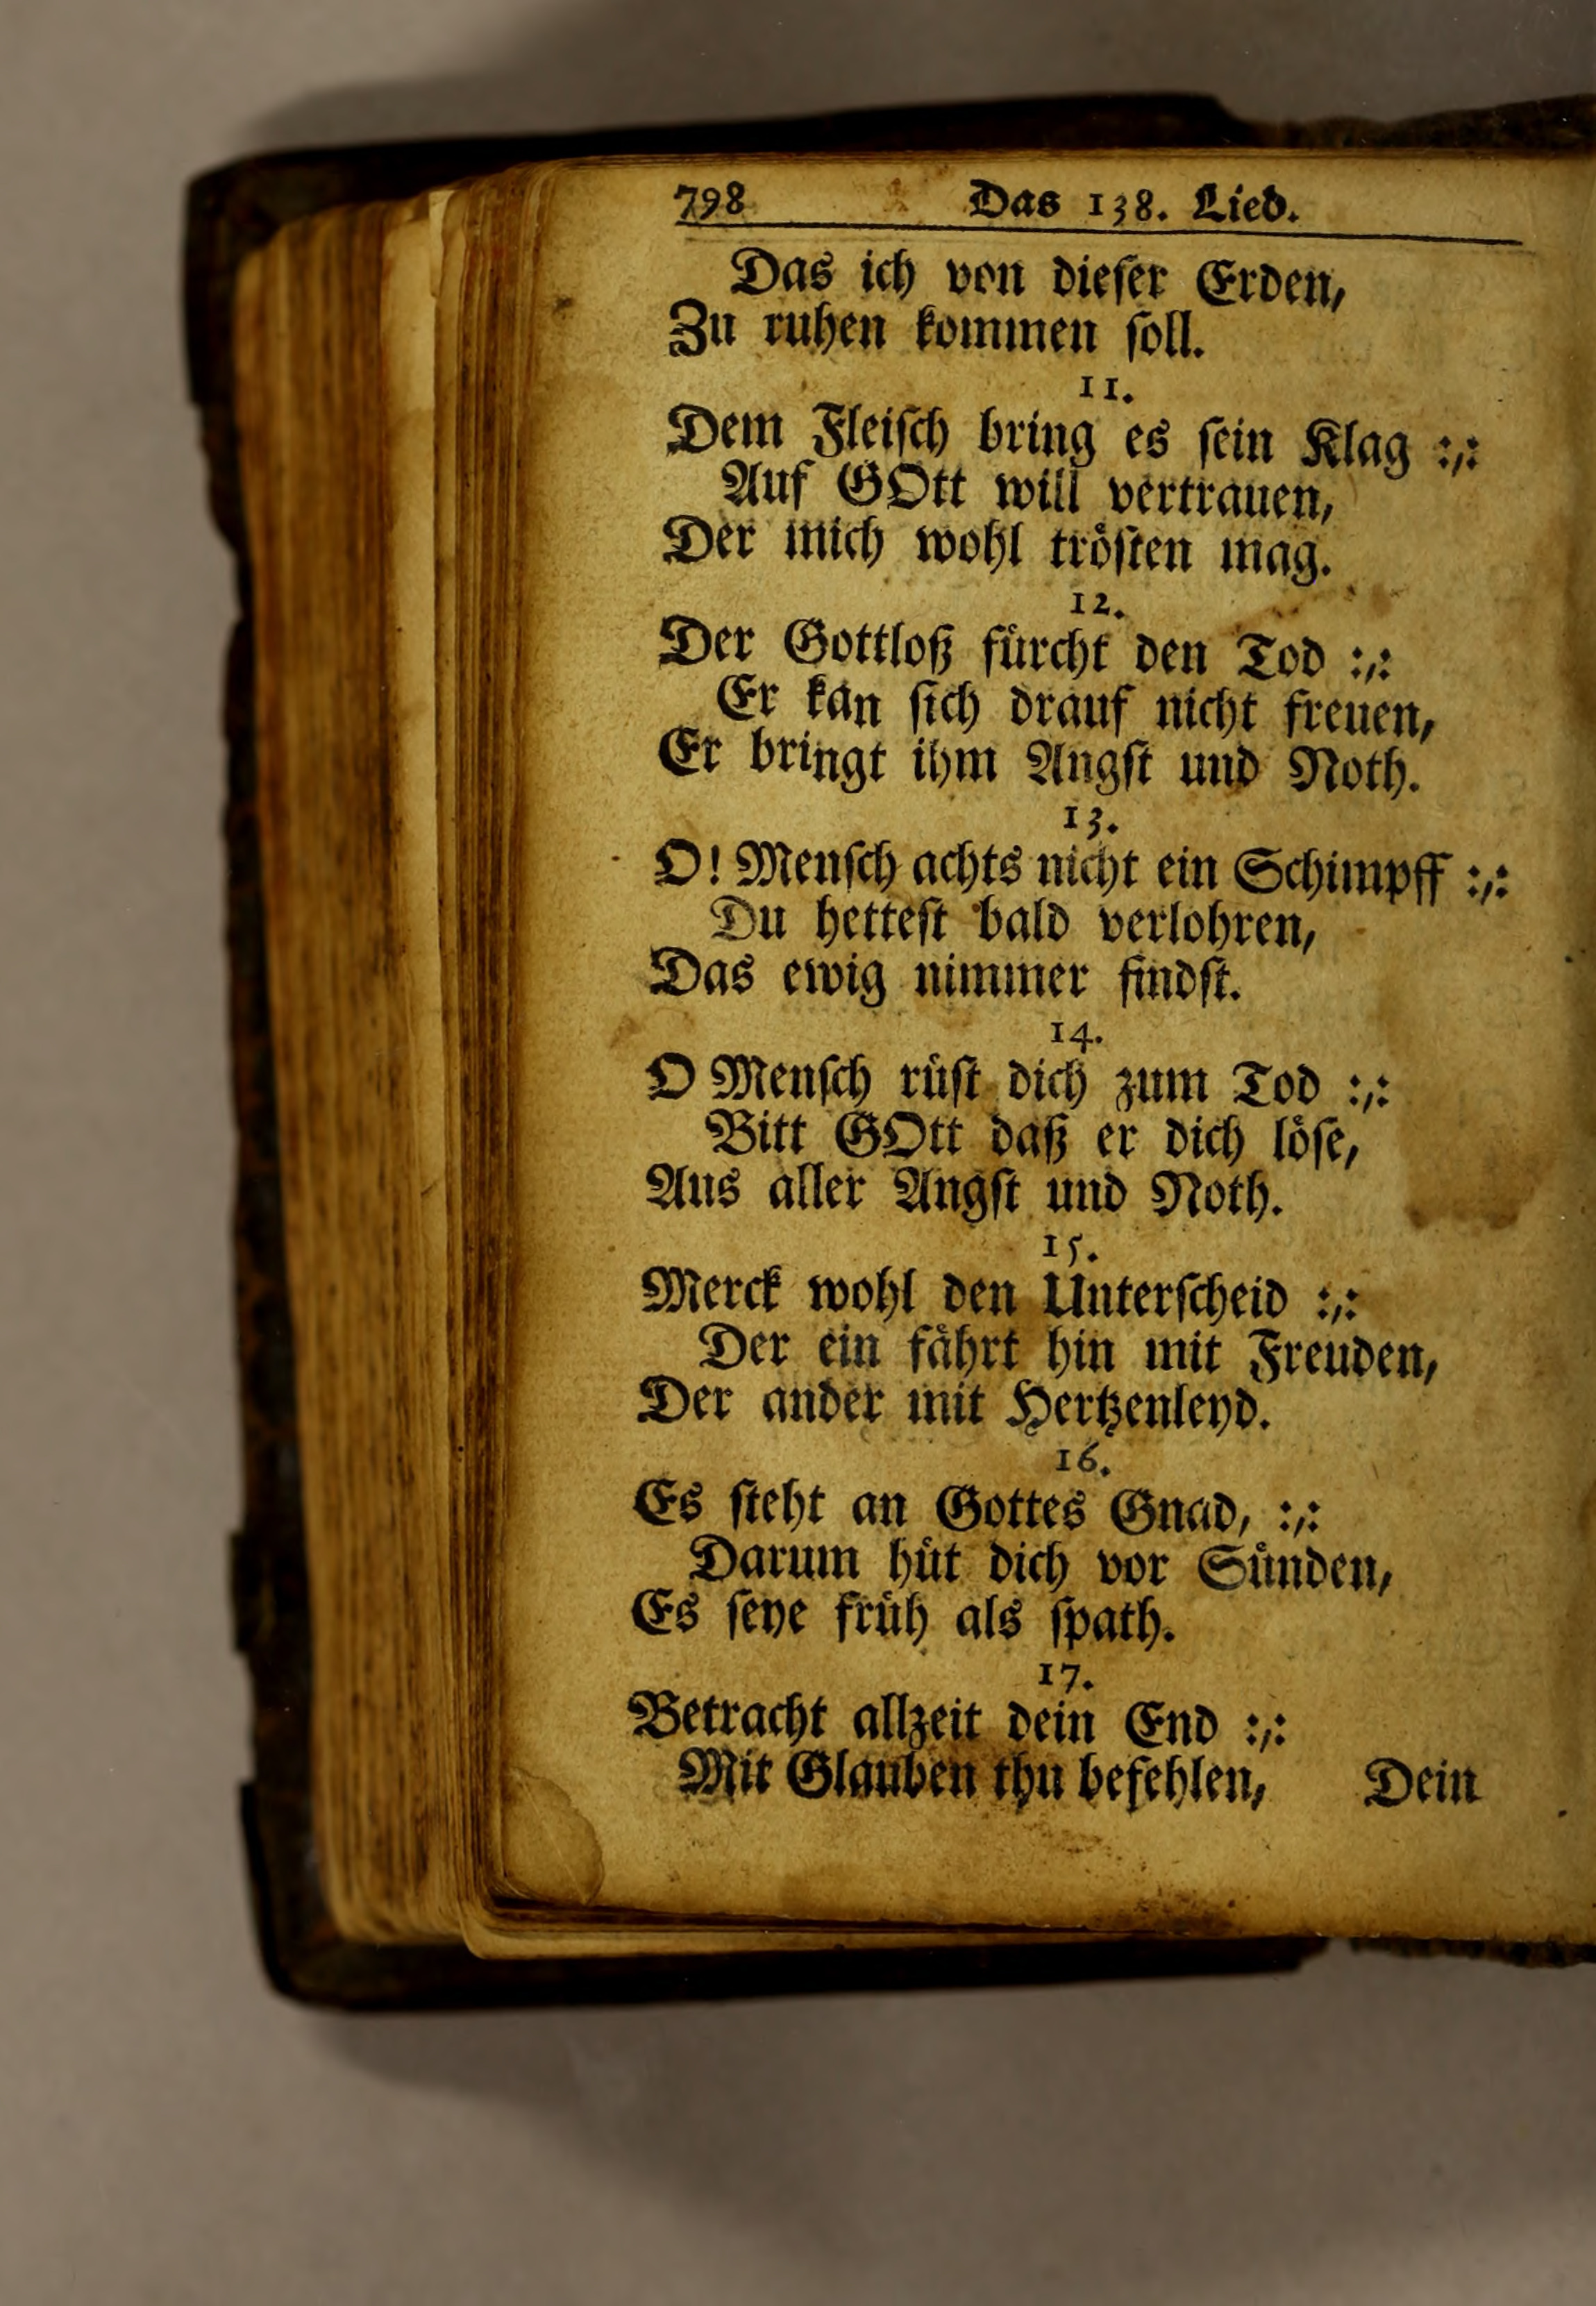 798 Das 138. Lied.
Das ich von dieser Erden,
Zu ruhen kommen soll.
11.
Dem Fleisch bring es sein Klag :,:
Auf GOtt will vertrauen,
Der mich wohl trösten mag.
12.
Der Gottloß fürcht den Tod :,:
Er kan sich drauf nicht freuen,
Er bringt ihm Angst und Noth.
13.
O! Mensch achts nicht ein Schimpff :,:
Du hettest bald verlohren,
Das ewig nimmer findst.
14.
O Mensch rüst dich zum Tod :,:
Bitt GOtt daß er dich löse,
Aus aller Angst und Noth.
15.
Merck wohl den Unterscheid :,:
Der ein fährt hin mit Freuden,
Der ander mit Hertzenleyd.
16.
Es steht an Gottes Gnad, :,:
Darum hüt dich vor Sünden,
Es seye früh als spath.
17.
Betracht allzeit dein End :,:
Mit Glauben thu befehlen, Dein